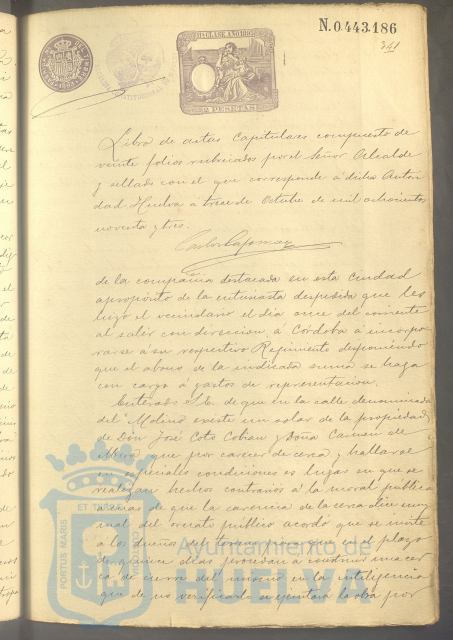 N.0.443.186
341
11ª CLASE AÑO 1893
2 PESETAS
Libro de actas Capitulares compuesto de
veinte folios rubricados por el Señor Alcalde
y sellado con el que corresponde á dicha Autori
dad. Huelva a trece de Octubre de mil ochocientos
noventa y tres.
de la compañia destacada en esta Ciudad
aproposito de la entusiasta despedida que les
hizo el vecindario el dia once del corriente
al salir con direccion á Córdoba á incorpo
rarse á su respectivo Regimiento disponiendo
que el abono de la indicada suma se haga
con cargo á gastos de representacion.
Enterado S.E. de que en la calle denominada
del Molino existe un solar de la propiedad
de Don José Coto Coban y Doña Carmen de
Mora que por carecer de cerca y hallarse
en especiales condiciones es lugar en que se
realizan hechos contrarios á la moral pública
ademas de que la carencia de la cerca dice muy
mal del ornato público acordó que se invite
á los dueños del terreno para que en el plazo
de quince dias procedan á construir una cer
ca de cierre del mismo en la inteligencia
que de no verificarlo se ejecutará la obra por
ET TERRÆ
PORTUS MARIS
CUSTODIA
Ayuntamiento de
HUELVA